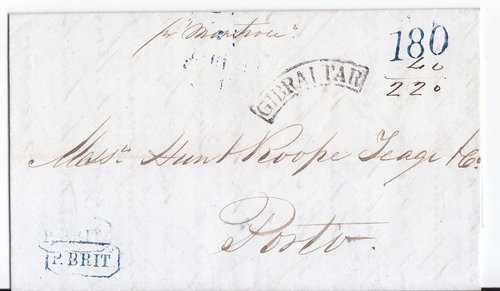 pr "Montrose"
180
40
220
GIBRALTAR
Messrs Hunt Roope Teage & Co
Porto.
P. BRIT